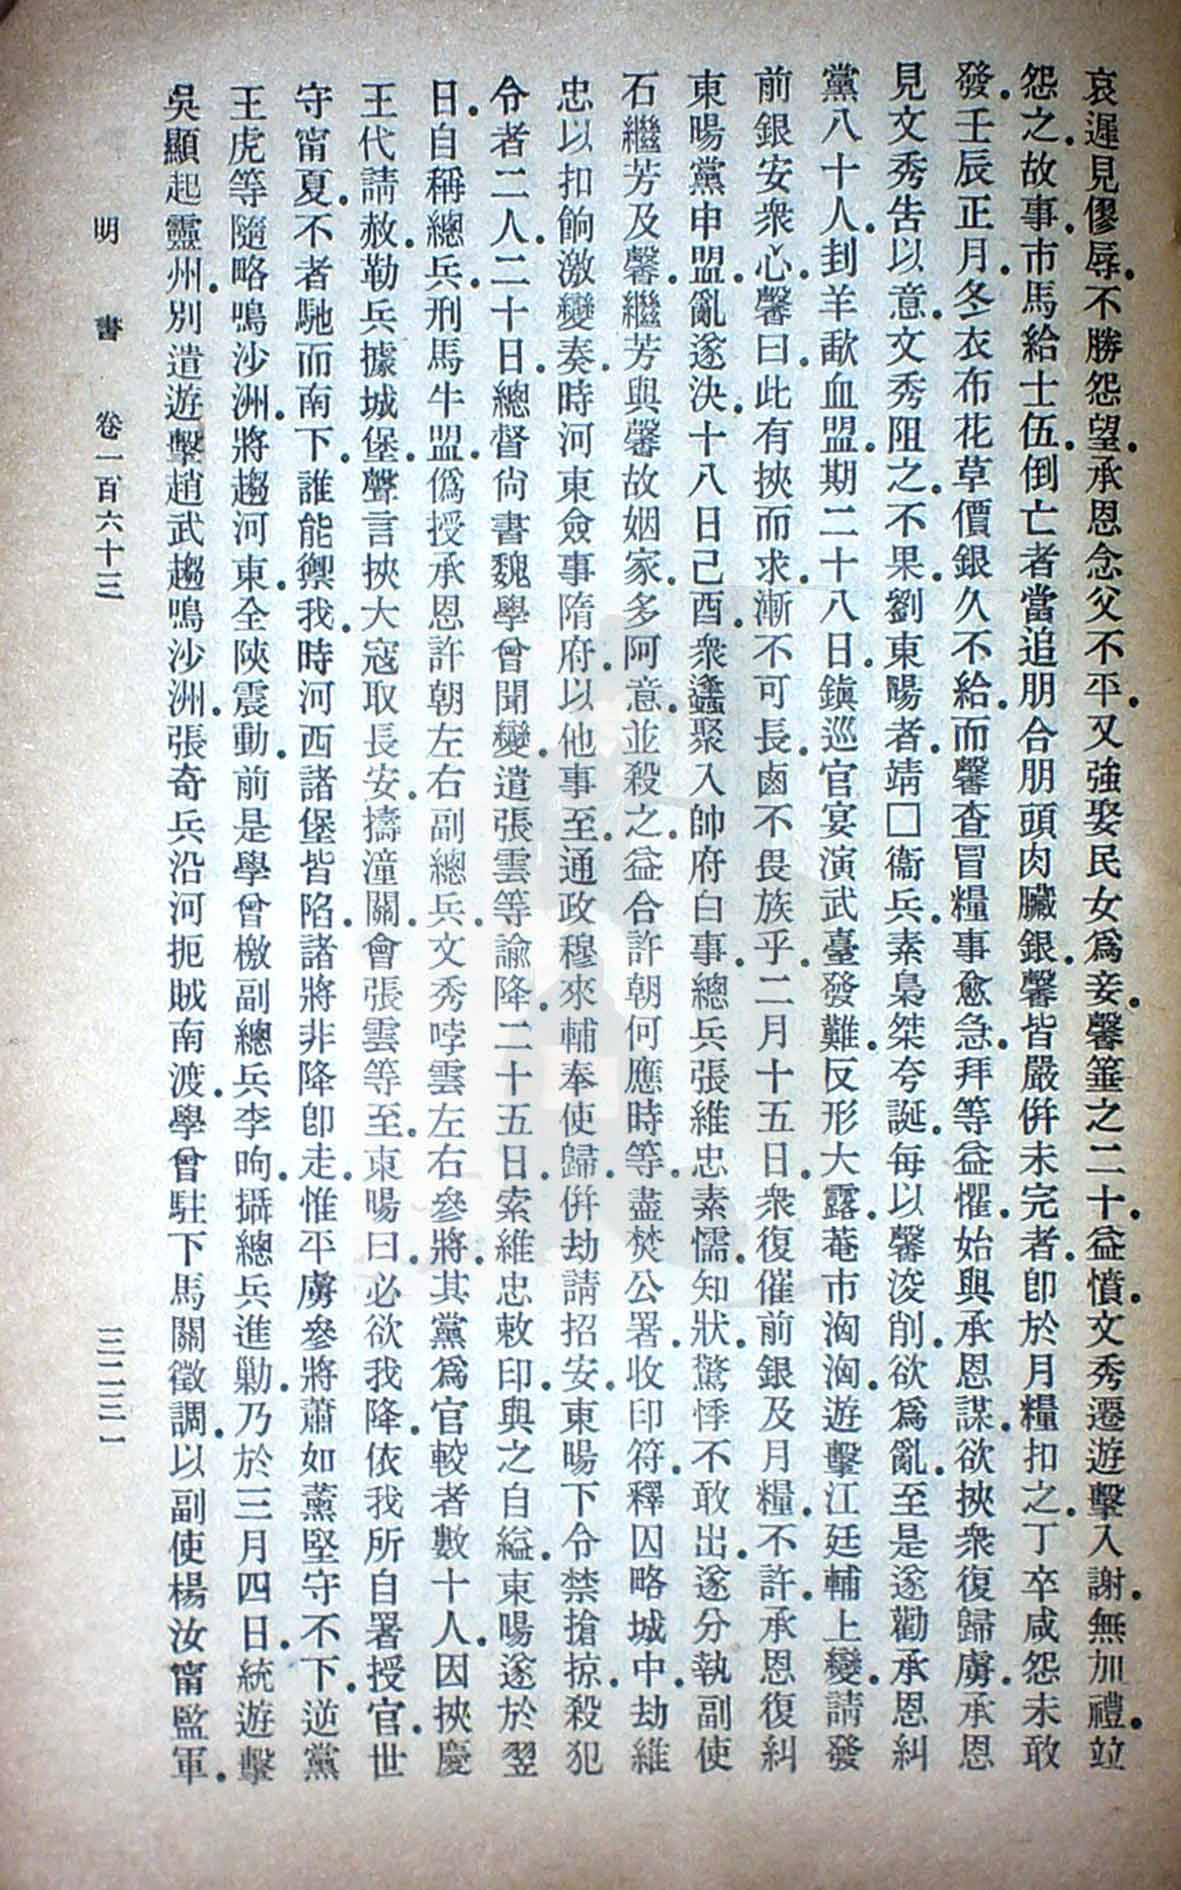 哀遲見僇辱。不勝怨望。承恩念父不平。又強娶民女爲妾。馨箠之二十。益憤。文秀遷遊擊入謝。無加禮。竝
怨之。故事。市馬給士伍。倒亡者當追朋合朋頭肉臟銀。馨皆嚴倂未完者。卽於月糧扣之。丁卒咸怨未敢
發。壬辰正月。冬衣布花草價銀久不給。而馨查冒糧事愈急。拜等益懼。始與承恩謀。欲挾衆復歸虜。承恩
見文秀告以意。文秀阻之。不果。劉東暘者。靖□衞兵。素梟桀夸誕。每以馨浚削。欲爲亂。至是遂勸承恩糾
黨八十人。刲羊歃血盟。期二十八日。鎮巡官宴演武臺發難。反形大露。菴市洶洶。遊擊江廷輔上變。請發
前銀安衆心。馨曰。此有挾而求。漸不可長。鹵不畏族乎。二月十五日。衆復催前銀及月糧。不許。承恩復糾
東暘黨申盟。亂遂決。十八日己酉。衆蠭聚入帥府白事。總兵張維忠素懦。知狀。驚悸不敢出。遂分執副使
石繼芳及馨。繼芳與馨故姻家。多阿意。並殺之。益合許朝何應時等。盡焚公署。收印符。釋囚略城中。劫維
忠以扣餉激變奏。時河東僉事隋府。以他事至。通政穆來輔奉使歸。倂劫請招安。東暘下令禁搶掠。殺犯
令者二人。二十日。總督尙書魏學曾聞變。遣張雲等諭降。二十五日。索維忠敕印。與之自縊。東暘遂於翌
日。自稱總兵。刑馬牛盟。僞授承恩許朝左右副總兵。文秀哱雲左右參將。其黨爲官較者數十人。因挾慶
王代請赦。勒兵據城堡。聲言挾大寇取長安。擣潼關。會張雲等至。東暘曰。必欲我降。依我所自署授官。世
守甯夏。不者馳而南下。誰能禦我。時河西諸堡皆陷。諸將非降卽走。惟平虜參將蕭如薰堅守不下。逆黨
王虎等隨略鳴沙洲。將趨河東。全陝震動。前是學曾檄副總兵李昫。攝總兵進勦。乃於三月四日。統遊擊
吳顯起靈州。別遣遊擊趙武趨鳴沙洲。張奇兵沿河扼賊南渡。學曾駐下馬關徵調。以副使楊汝甯監軍。
明書 卷一百六十三 三二三一